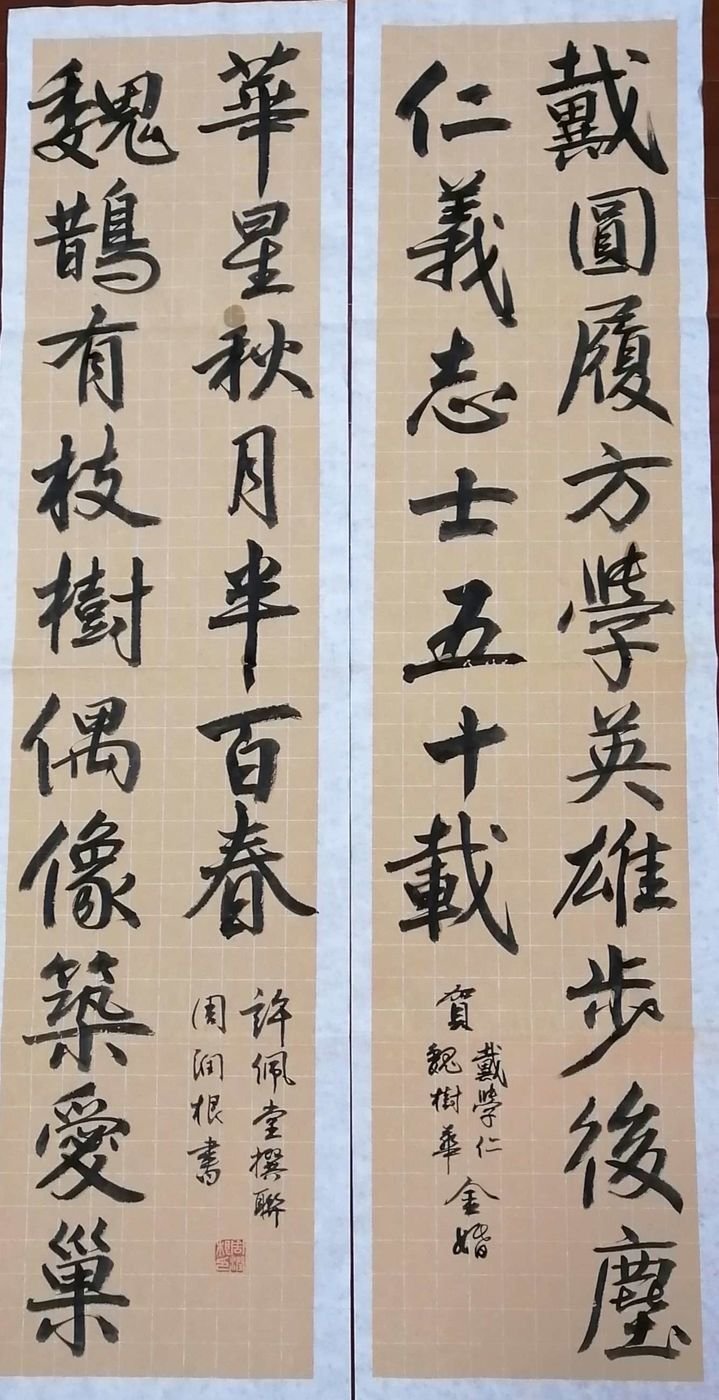 戴圓履方學英雄步後塵
仁義志士五十載
賀
戴學仁
魏樹華
金婚
魏鵲有枝樹偶像築愛巢
華星秋月半百春
許佩堂撰聯
周润根書